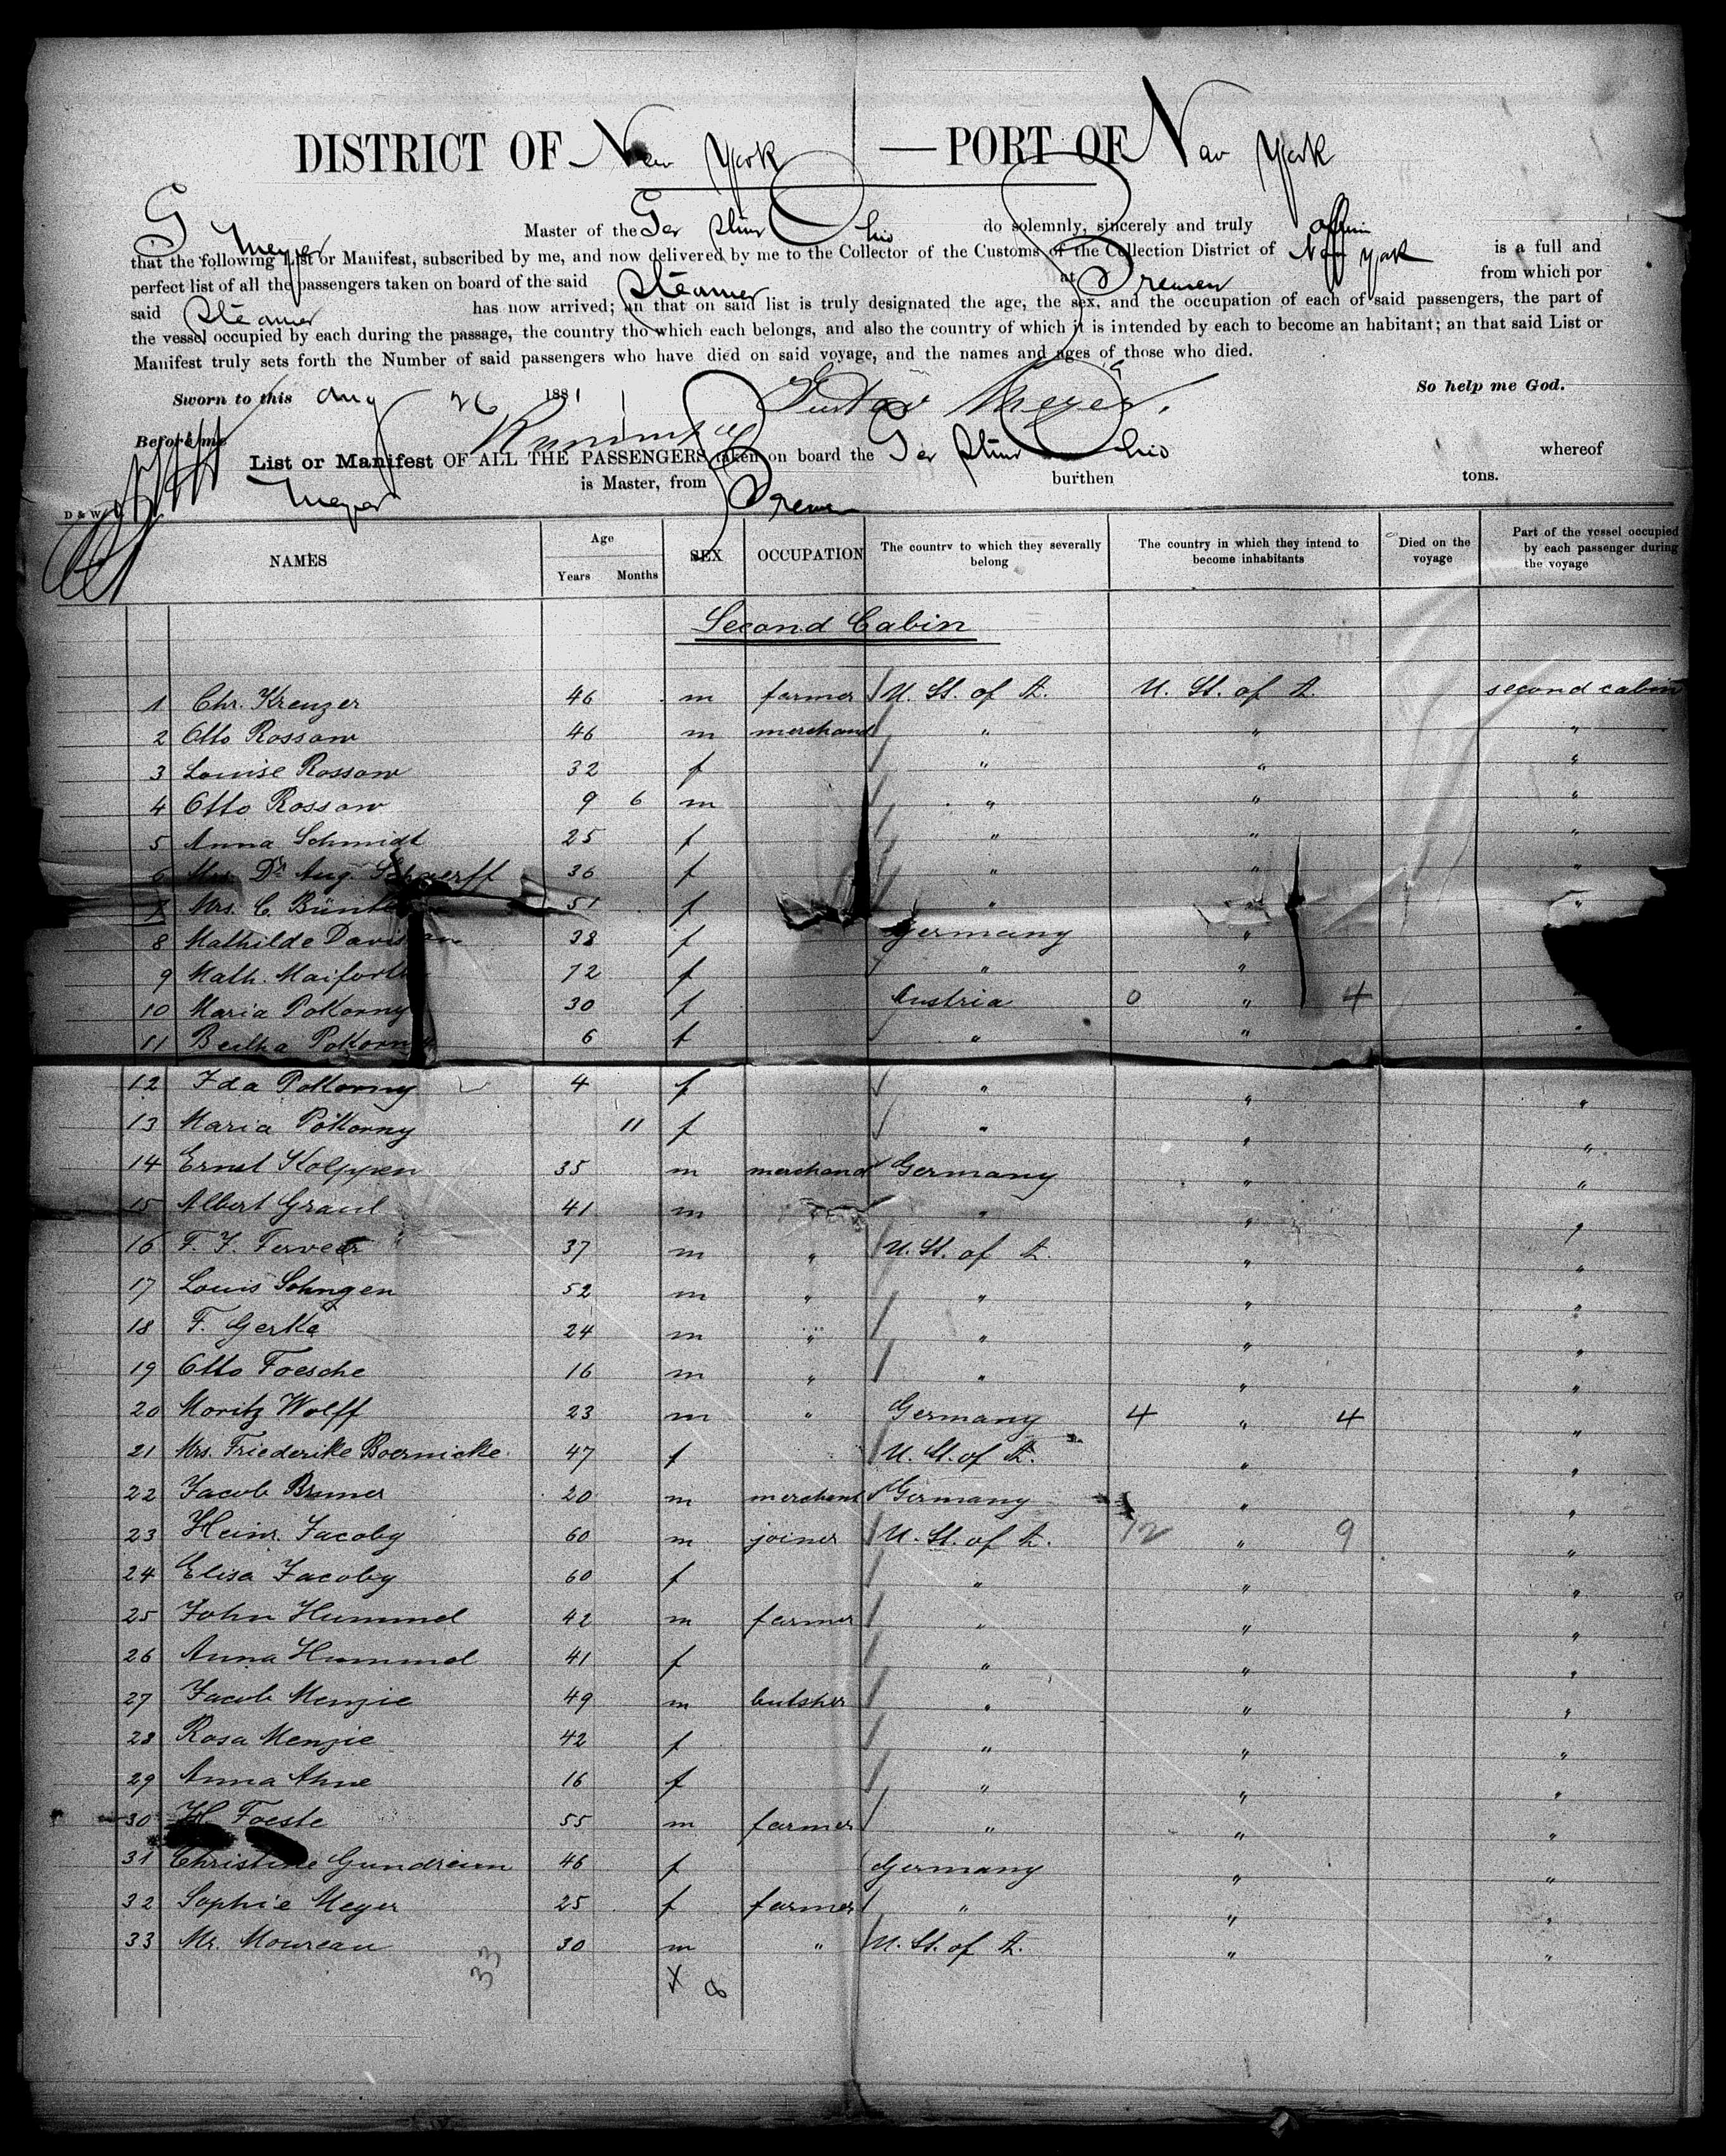 DISTRICT OF New York — PORT OF New York
G Meyer Master of the Ger Stmr Ohio do solemnly, sincerely and truly affirm
that the following List or Manifest, subscribed by me, and now delivered by me to the Collector of the Customs of the Collection District of New York is a full and
perfect list of all the passengers taken on board of the said Steamer at Bremen from which por
said Steamer has now arrived; an that on said list is truly designated the age, the sex, and the occupation of each of said passengers, the part of
the vessel occupied by each during the passage, the country tho which each belongs, and also the country of which it is intended by each to become an habitant; an that said List or
Manifest truly sets forth the Number of said passengers who have died on said voyage, and the names and ages of those who died.
Sworn to this Aug 26 1881 Gustav Meyer. So help me God.
Before me
List or Manifest OF ALL THE PASSENGERS taken on board the Ger Stmr Ohio whereof
Meyer is Master, from Bremen burthen tons.
D & W
NAMES Age Years Months SEX OCCUPATION The country to which they severally belong The country in which they intend to become inhabitants Died on the voyage Part of the vessel occupied by each passenger during the voyage
Second Cabin
1 Chr. Kreuzer 46 m farmer U. St. of A. U. St. of A. second cabin
2 Otto Rossow 46 m merchand " " "
3 Louise Rossow 32 f " " "
4 Otto Rossow 9 6 m " " "
5 Anna Schmidt 25 f " " "
6 Mrs. Dr. Aug. Schaerff 36 f " " "
7 Mrs. C. 51 f " " "
8 Mathilde 38 f Germany "
9 Math. 72 f " "
10 Maria Pokorny 30 f Austria 0 " 4 "
11 Bertha Pokorny 6 f " " "
12 Ida Pokorny 4 f " " "
13 Maria Pokorny 11 f " " "
14 Ernst Kolppen 35 m merchand Germany " "
15 Albert Graul 41 m " " "
16 F. J. Terveer 37 m " U. St. of A. " "
17 Louis Sohngen 52 m " " " "
18 F. Gerke 24 m " " " "
19 Otto Foesche 16 m " " " "
20 Moritz Wolff 23 m " Germany 4 " 4 "
21 Mrs. Friederike Boernicke 47 f U. St. of A. " "
22 Jacob Bruner 20 m merchant Germany " "
23 Heinr. Jacoby 60 m joiner U. St. of A. 12 " 9 "
24 Elisa Jacoby 60 f " " "
25 John Hummel 42 m farmer " " "
26 Anna Hummel 41 f " " "
27 Jacob Menzie 49 m butsher " " "
28 Rosa Menzie 42 f " " "
29 Anna Ahne 16 f " " "
30 H. Foeste 55 m farmer " " "
31 Christine Gundreim 46 f Germany " "
32 Sophie Meyer 25 f farmer " " "
33 Mr. Moureau 30 m " U. St. of A. " "
33 X 8